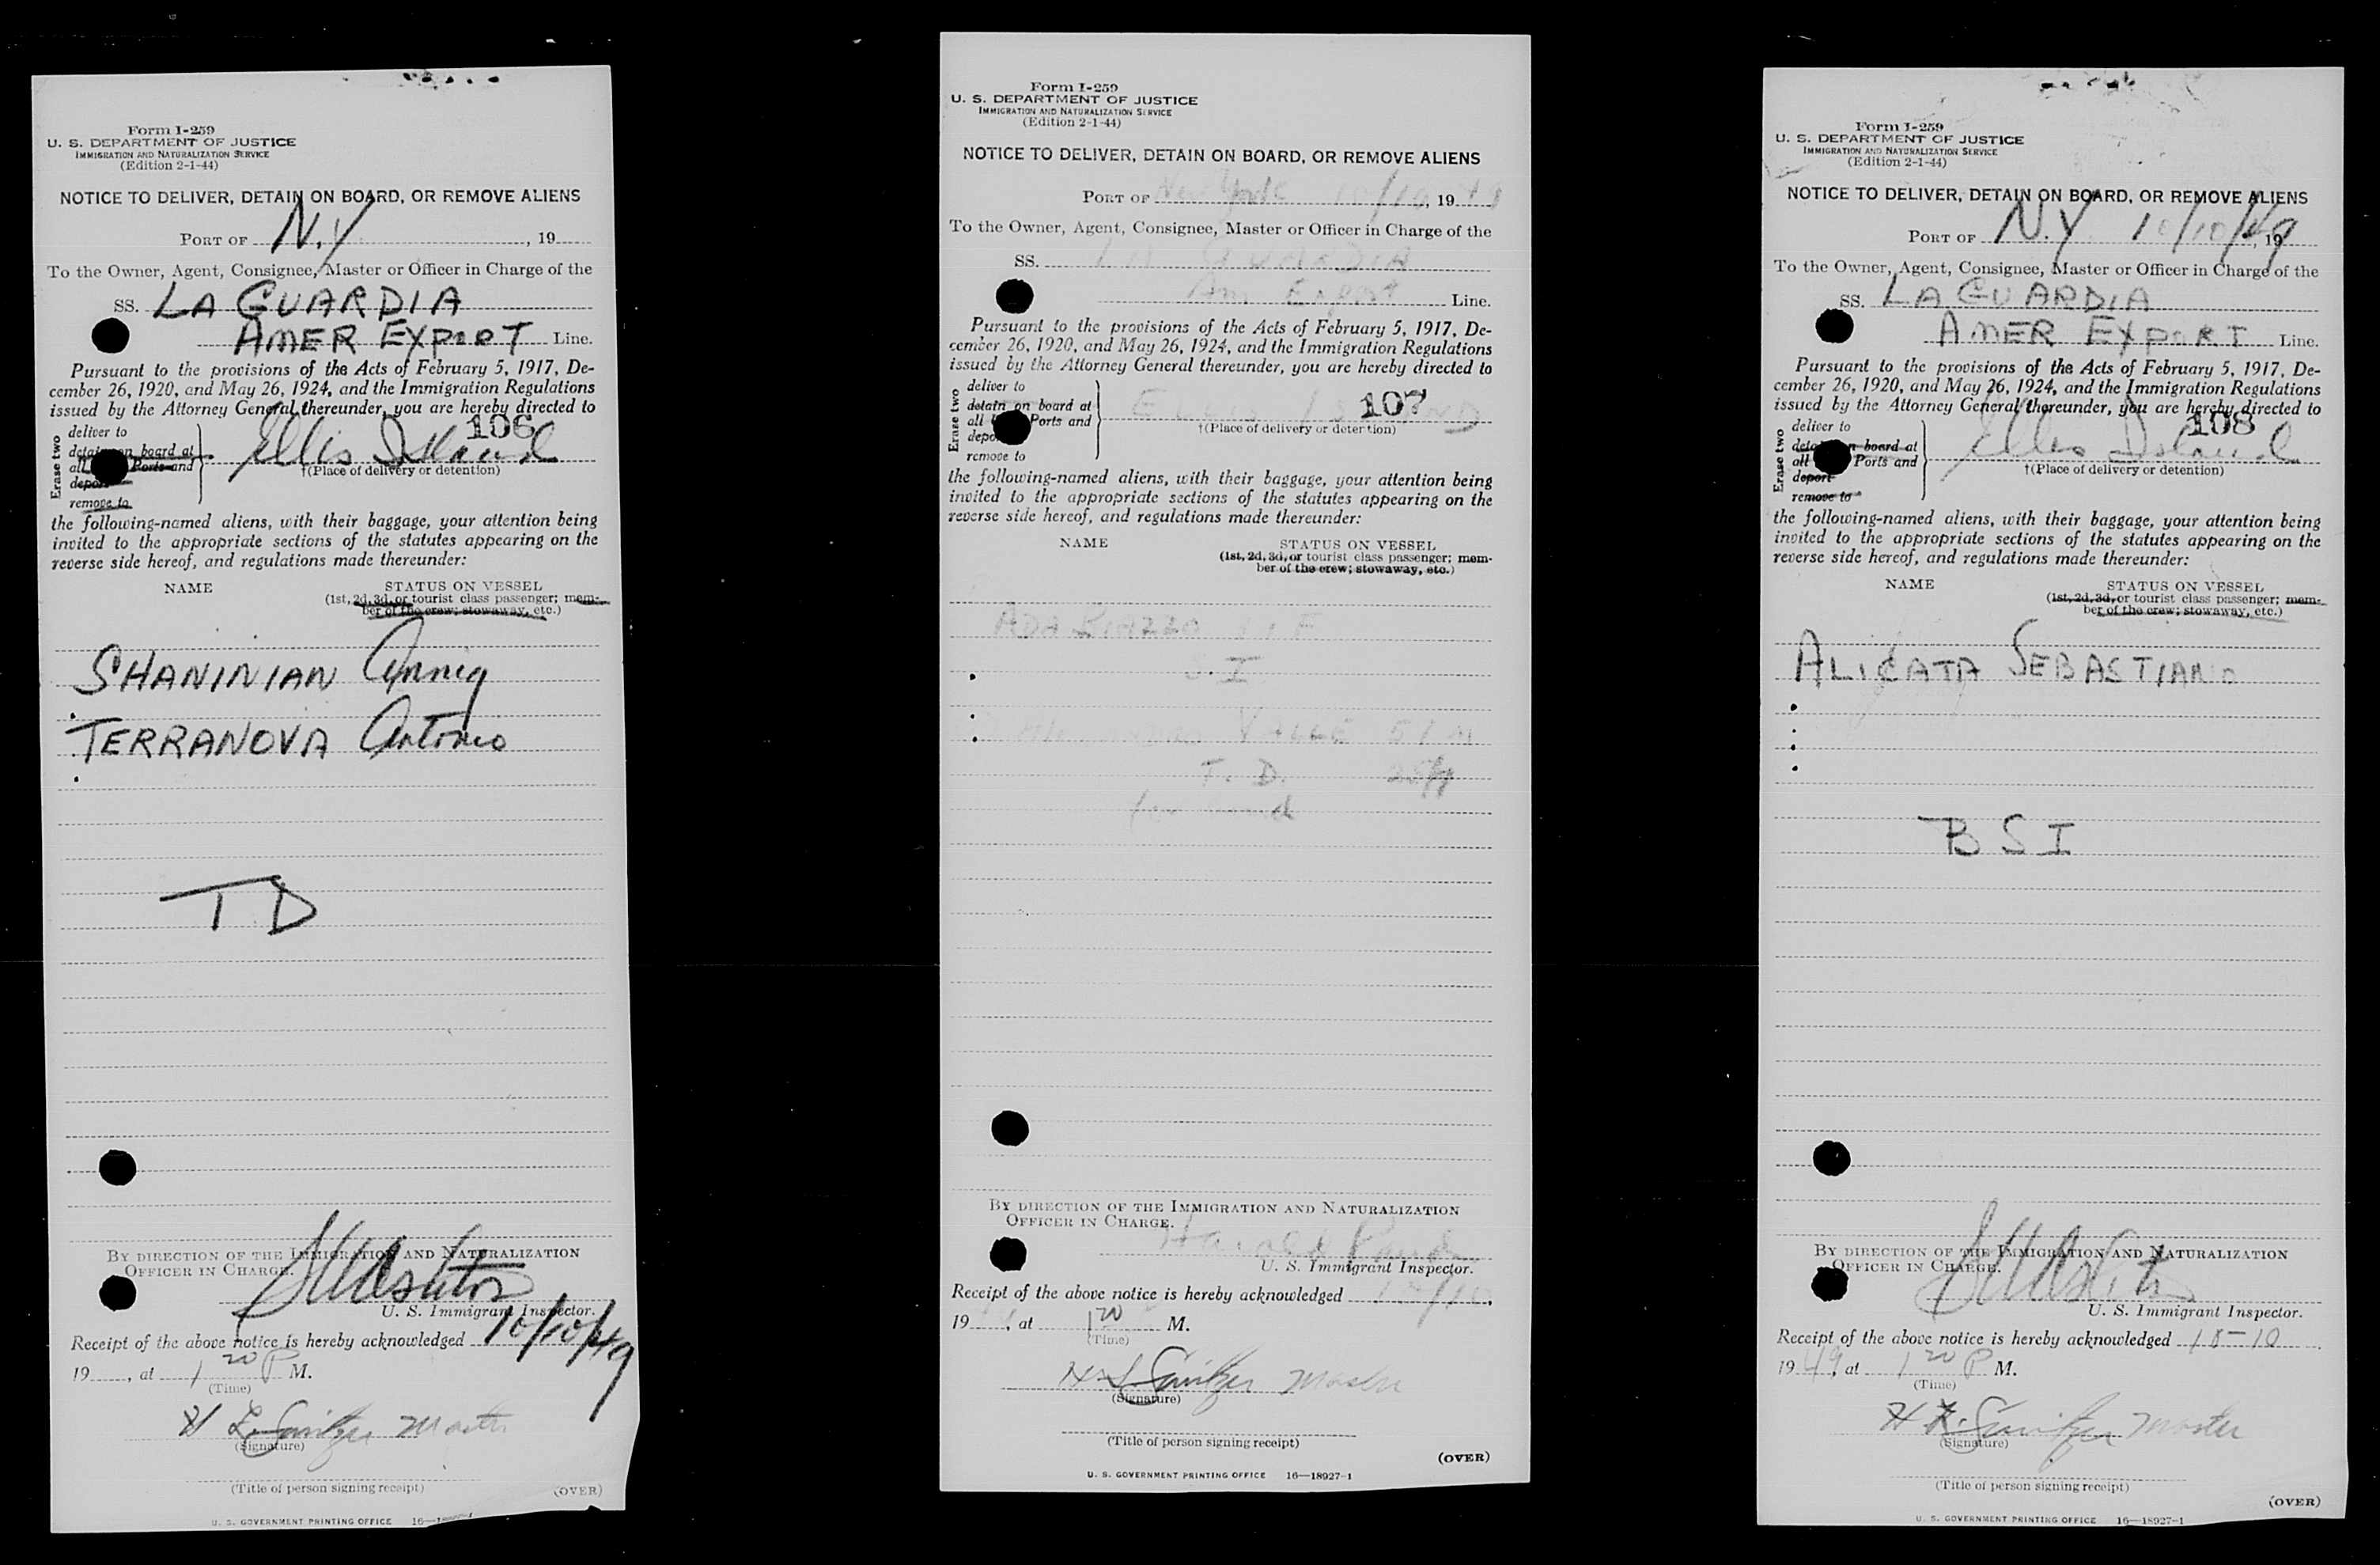 Form I-259
U. S. DEPARTMENT OF JUSTICE
IMMIGRATION AND NATURALIZATION SERVICE
(Edition 2-1-44)
NOTICE TO DELIVER, DETAIN ON BOARD, OR REMOVE ALIENS
PORT OF N.Y , 19
To the Owner, Agent, Consignee, Master or Officer in Charge of the
SS. LA GUARDIA
AMER EXPORT Line.
Pursuant to the provisions of the Acts of February 5, 1917, De-
cember 26, 1920, and May 26, 1924, and the Immigration Regulations
issued by the Attorney General thereunder, you are hereby directed to
Erase two
deliver to
detain on board at
all Ports and
deport
remove to
106
Ellis Island
†(Place of delivery or detention)
the following-named aliens, with their baggage, your attention being
invited to the appropriate sections of the statutes appearing on the
reverse side hereof, and regulations made thereunder:
NAME STATUS ON VESSEL
(1st, 2d, 3d, or tourist class passenger; mem-
ber of the crew; stowaway, etc.)
SHANINIAN Annig
TERRANOVA Antonio
TD
BY DIRECTION OF THE IMMIGRATION AND NATURALIZATION
OFFICER IN CHARGE.
U. S. Immigrant Inspector.
Receipt of the above notice is hereby acknowledged 10/10/49
19 , at 1 20 P M.
(Time)
Master
(Signature)
(Title of person signing receipt)
(OVER)
U. S. GOVERNMENT PRINTING OFFICE 16—
Form I-259
U. S. DEPARTMENT OF JUSTICE
IMMIGRATION AND NATURALIZATION SERVICE
(Edition 2-1-44)
NOTICE TO DELIVER, DETAIN ON BOARD, OR REMOVE ALIENS
PORT OF New York 10/10, 19 49
To the Owner, Agent, Consignee, Master or Officer in Charge of the
SS. LA GUARDIA
Am Export Line.
Pursuant to the provisions of the Acts of February 5, 1917, De-
cember 26, 1920, and May 26, 1924, and the Immigration Regulations
issued by the Attorney General thereunder, you are hereby directed to
Erase two
deliver to
detain on board at
all Ports and
depo
remove to
107
ELLIS ISLAND
†(Place of delivery or detention)
the following-named aliens, with their baggage, your attention being
invited to the appropriate sections of the statutes appearing on the
reverse side hereof, and regulations made thereunder:
NAME STATUS ON VESSEL
(1st, 2d, 3d, or tourist class passenger; mem-
ber of the crew; stowaway, etc.)
ADA F
S. I
VALLE 51 M
T. D.
BY DIRECTION OF THE IMMIGRATION AND NATURALIZATION
OFFICER IN CHARGE.
Harold
U. S. Immigrant Inspector.
Receipt of the above notice is hereby acknowledged 10/10,
19 , at 1 20 M.
(Time)
Master
(Signature)
(Title of person signing receipt)
(OVER)
U. S. GOVERNMENT PRINTING OFFICE 16—18927-1
Form I-259
U. S. DEPARTMENT OF JUSTICE
IMMIGRATION AND NATURALIZATION SERVICE
(Edition 2-1-44)
NOTICE TO DELIVER, DETAIN ON BOARD, OR REMOVE ALIENS
PORT OF N.Y 10/10/49, 19
To the Owner, Agent, Consignee, Master or Officer in Charge of the
SS. LA GUARDIA
AMER EXPORT Line.
Pursuant to the provisions of the Acts of February 5, 1917, De-
cember 26, 1920, and May 26, 1924, and the Immigration Regulations
issued by the Attorney General thereunder, you are hereby directed to
Erase two
deliver to
detain on board at
all Ports and
deport
remove to
108
Ellis Island
†(Place of delivery or detention)
the following-named aliens, with their baggage, your attention being
invited to the appropriate sections of the statutes appearing on the
reverse side hereof, and regulations made thereunder:
NAME STATUS ON VESSEL
(1st, 2d, 3d, or tourist class passenger; mem-
ber of the crew; stowaway, etc.)
ALICATA SEBASTIANO
BSI
BY DIRECTION OF THE IMMIGRATION AND NATURALIZATION
OFFICER IN CHARGE.
U. S. Immigrant Inspector.
Receipt of the above notice is hereby acknowledged 10-10
19 49, at 1 20 P M.
(Time)
Master
(Signature)
(Title of person signing receipt)
(OVER)
U. S. GOVERNMENT PRINTING OFFICE 16—18927-1